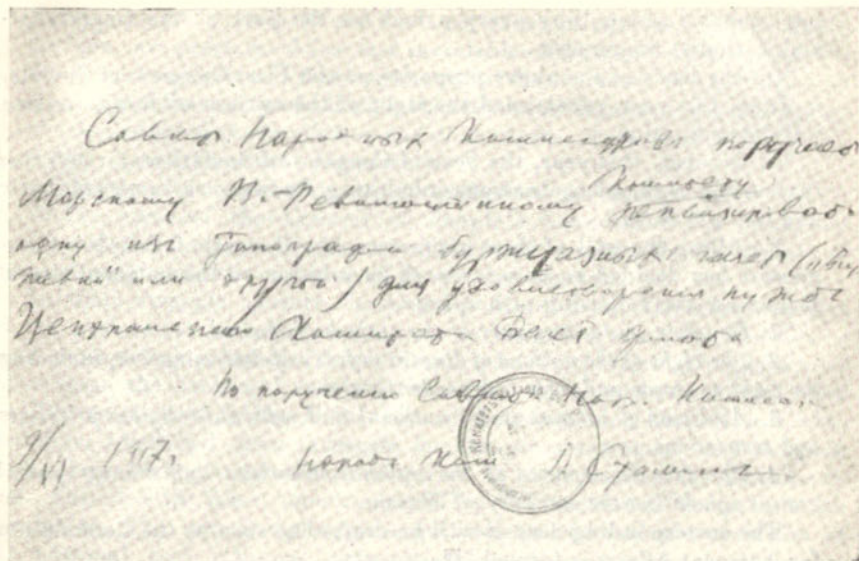 Совет Народных Комиссаров поручает
Морскому В.-Революционному Комитету реквизировать
одну из типографий буржуазных газет („Бир
жевой“ или другой) для удовлетворения нужд
Центрального Комитета Балт. флота
По поручению Совета Нар. Комиссар.
9/XI 1917 г. Народн. Ком И. Сталин